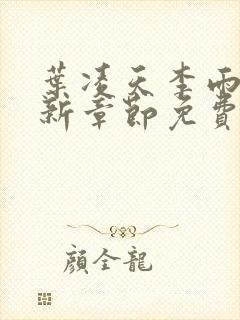 葉凌天李雨
新章節免費
顏全龍